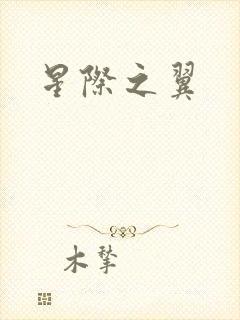 星際之翼
木摯